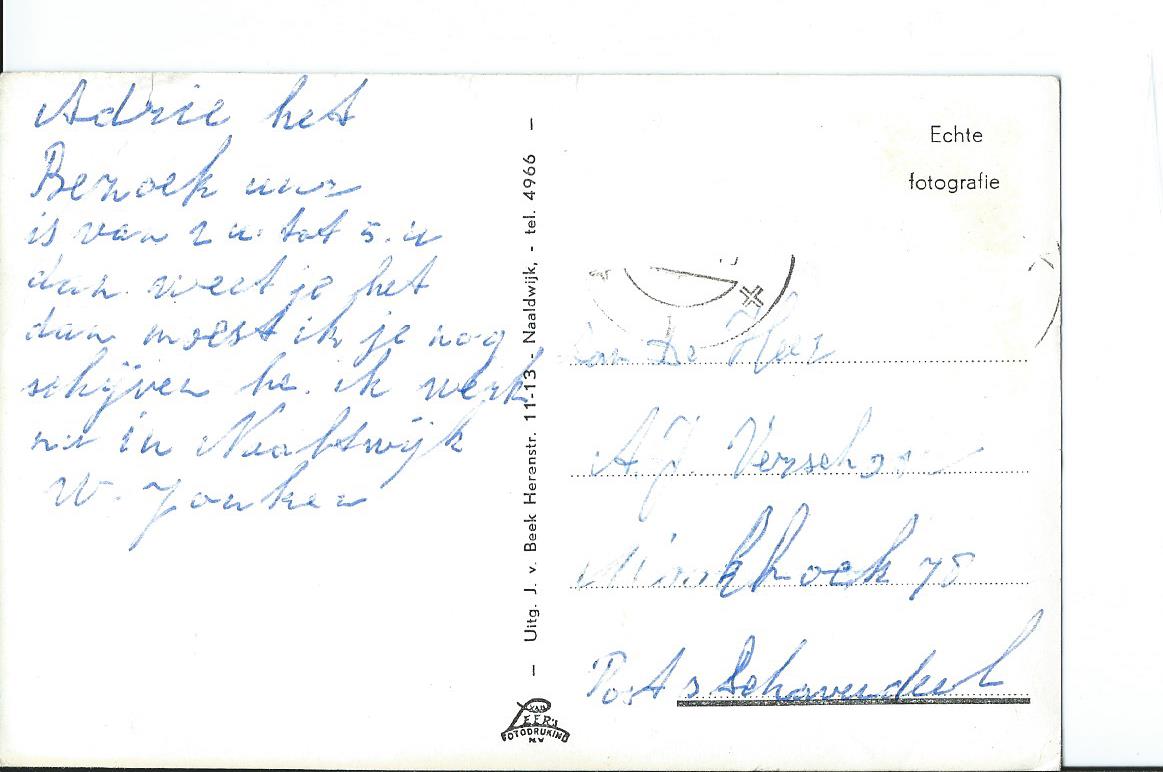 Adrie het
Bezoek uur
is van 2 u. tot 5. u
dan weet je het
dan moest ik je nog
schijven he. ik werk
nu in Naaltwijk
W. Jonker
- Uitg. J. v. Beek Herenstr. 11-13 - Naaldwijk, - tel. 4966 -
VAN
LEER'S
FOTODRUKIND
N.V.
Echte
fotografie
De Heer
A.J. Verschoor
78
Post s Gravendeel